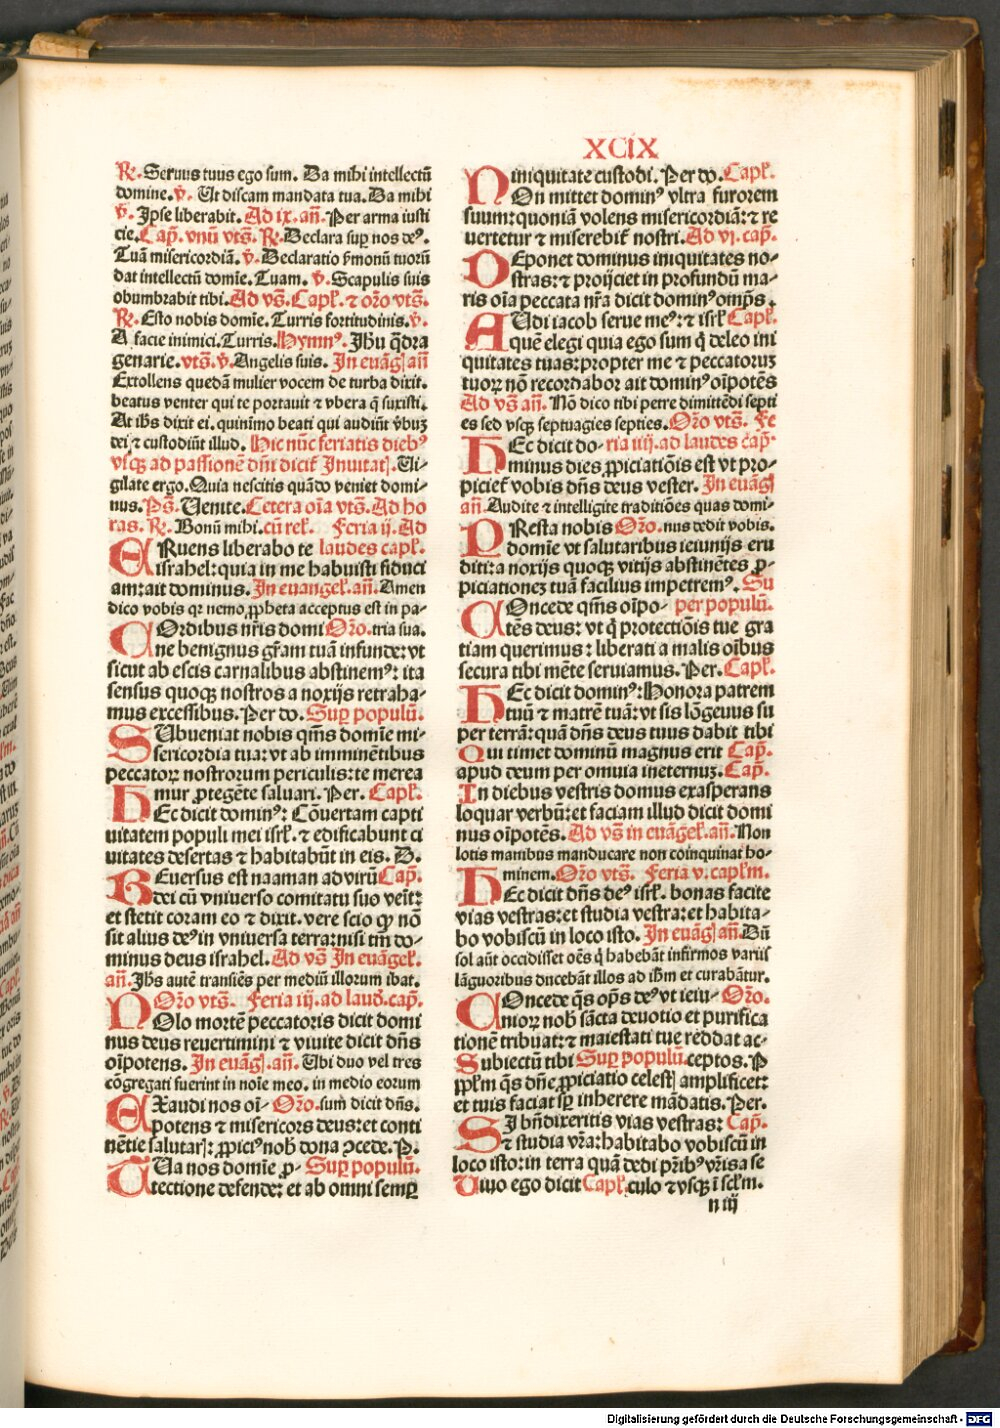 XCIX
R. Seruus tuus ego sum. Da mihi intellectū
domine. v̄. Ut discam mandata tua. Da mihi
v̄. Ipse liberabit. Ad ix. añ. Per arma iusti
cie. Cap̄. vnū vts̄. R. Declara suꝑ nos deꝰ.
Tuā misericordiā. v̄. Declaratio s̄monū tuorū
dat intellectū domīe. Tuam. v̄. Scapulis suis
obumbrabit tibi. Ad vs̄. Capl̄. ⁊ or̄o vts̄.
R. Esto nobis domīe. Turris fortitudinis. v̄.
A facie inimici. Turris. Hymnꝰ. Jhū q̄dra
genarie. vts̄. v̄. Angelis suis. In euāgl̄ añ
Extollens quedā mulier vocem de turba dixit.
beatus venter qui te portauit ⁊ vbera q̄ suxisti.
At ih̄s dixit ei. quinimo beati qui audiūt v̄buꝫ
dei ⁊ custodiūt illud. Hic nūc feriatis diebꝰ
vsqꝫ ad passionē dn̄i dicit̄ Inuitat̄. Ui-
gilate ergo. Quia nescitis quādo veniet domi-
nus. Ps̄. Uenite. Cetera oīa vts̄. Ad ho
ras. R. Bonū mihi. cū rel̄. Feria ij. Ad
ERuens liberabo te laudes capl̄.
israhel: quia in me habuisti fiduci
am: ait dominus. In euangel̄. añ. Amen
dico vobis qr nemo ꝓpheta acceptus est in pa-
COrdibus nr̄is domi Or̄o. tria sua.
ne benignus gr̄am tuā infunde: vt
sicut ab escis carnalibus abstinemꝰ: ita
sensus quoqꝫ nostros a noxijs retraha-
mus excessibus. Per do. Suꝑ populū.
SUbueniat nobis qm̄s domīe mi-
sericordia tua: vt ab imminētibus
peccatoꝝ nostrorum periculis: te merea
mur ꝓtegēte saluari. Per. Capl̄.
HEc dicit dominꝰ: Cōuertam capti
uitatem populi mei isrl̄. ⁊ edificabunt ci
uitates desertas ⁊ habitabūt in eis. D.
REuersus est naaman ad virū Cap̄.
dei cū vniuerso comitatu suo veīt:
et stetit coram eo ⁊ dixit. vere scio qꝫ nō
sit alius deꝰ in vniuersa terra: nisi tm̄ do-
minus deus israhel. Ad vs̄ In euāgel̄.
añ. Jh̄s autē transiēs per mediū illorum ibat.
Or̄o vts̄. Feria iij. ad laud. cap̄.
NOlo mortē peccatoris dicit domi
nus deus reuertimini ⁊ viuite dicit dn̄s
oīpotens. In euāgl̄. añ. Ubi duo vel tres
cōgregati fuerint in noīe meo. in medio eorum
EXaudi nos oī- Or̄o. sum dicit dn̄s.
potens ⁊ misericors deus: et conti
nētie salutarꝭ: ꝓpiciꝰ nob̄ dona ꝯcede. P.
TUa nos domīe ꝓ- Suꝑ populū.
tectione defende: et ab omni semꝑ
iniquitate custodi. Per do. Capl̄.
NOn mittet dominꝰ vltra furorem
suum: quoniā volens misericordiā: ⁊ re
uertetur ⁊ miserebit̄ nostri. Ad vi. cap̄.
DEponet dominus iniquitates no-
stras: ⁊ proijciet in profundū ma-
ris oīa peccata nr̄a dicit dominꝰ oīnps.
AUdi iacob serue meꝰ: ⁊ isrl̄ Capl̄.
quē elegi quia ego sum q̄ deleo ini
quitates tuas: propter me ⁊ peccatoruꝫ
tuoꝝ nō recordabor ait dominꝰ oīpotēs
Ad vs̄ añ. Nō dico tibi petre dimittēdi septi
es sed vsqꝫ septuagies septies. Or̄o vts̄. Fe
HEc dicit do- ria iiij. ad laudes cap̄.
minus dies ꝓpiciatiōis est vt pro-
piciet̄ vobis dn̄s deus vester. In euāgl̄
añ. Audite ⁊ intelligite traditiōes quas domi-
PResta nobis Or̄o. nus dedit vobis.
domīe vt salutaribus ieiunijs eru
diti: a noxijs quoqꝫ vitijs abstinētes ꝓ-
piciationeꝫ tuā facilius impetremꝰ. Su
COncede qm̄s oīpo- per populū.
tēs deus: vt q̄ protectiōis tue gra
tiam querimus: liberati a malis oībus
secura tibi mēte seruiamus. Per. Capl̄.
HEc dicit dominꝰ: Honora patrem
tuū ⁊ matrē tuā: vt sis lōgeuus su
per terrā: quā dn̄s deus tuus dabit tibi
Qui timet dominū magnus erit Cap̄.
apud deum per omuia ineternuꝫ. Cap̄.
In diebus vestris domus exasperans
loquar verbū: et faciam illud dicit domi
nus oīpotēs. Ad vs̄ in euāgel̄. añ. Non
lotis manibus manducare non coinquinat ho-
minem. Or̄o vts̄. Feria v. caplm̄.
HEc dicit dn̄s deꝰ isrl̄. bonas facite
vias vestras: et studia vestra: et habita-
bo vobiscū in loco isto. In euāgl̄ añ. Dū
sol aūt occidisset oēs q̄ habebāt infirmos varijs
lāguoribus ducebāt illos ad ih̄m et curabātur.
COncede q̄s op̄s deꝰ vt ieiu- Or̄o.
nioꝝ nob̄ sācta deuotio et purifica
tionē tribuat: ⁊ maiestati tue reddat ac-
Subiectū tibi Suꝑ populū. ceptos. P
ppl̄m q̄s dn̄e ꝓpiciatio celestꝭ amplificet:
et tuis faciat sꝑ inherere mādatis. Per.
SI bn̄dixeritis vias vestras: Cap̄.
⁊ studia vr̄a: habitabo vobiscū in
loco isto: in terra quā dedi pr̄ibꝰ vr̄is a se
Uiuo ego dicit Capl̄. culo ⁊ vsqꝫ ī scl̄m.
n iij
Digitalisierung gefördert durch die Deutsche Forschungsgemeinschaft - DFG